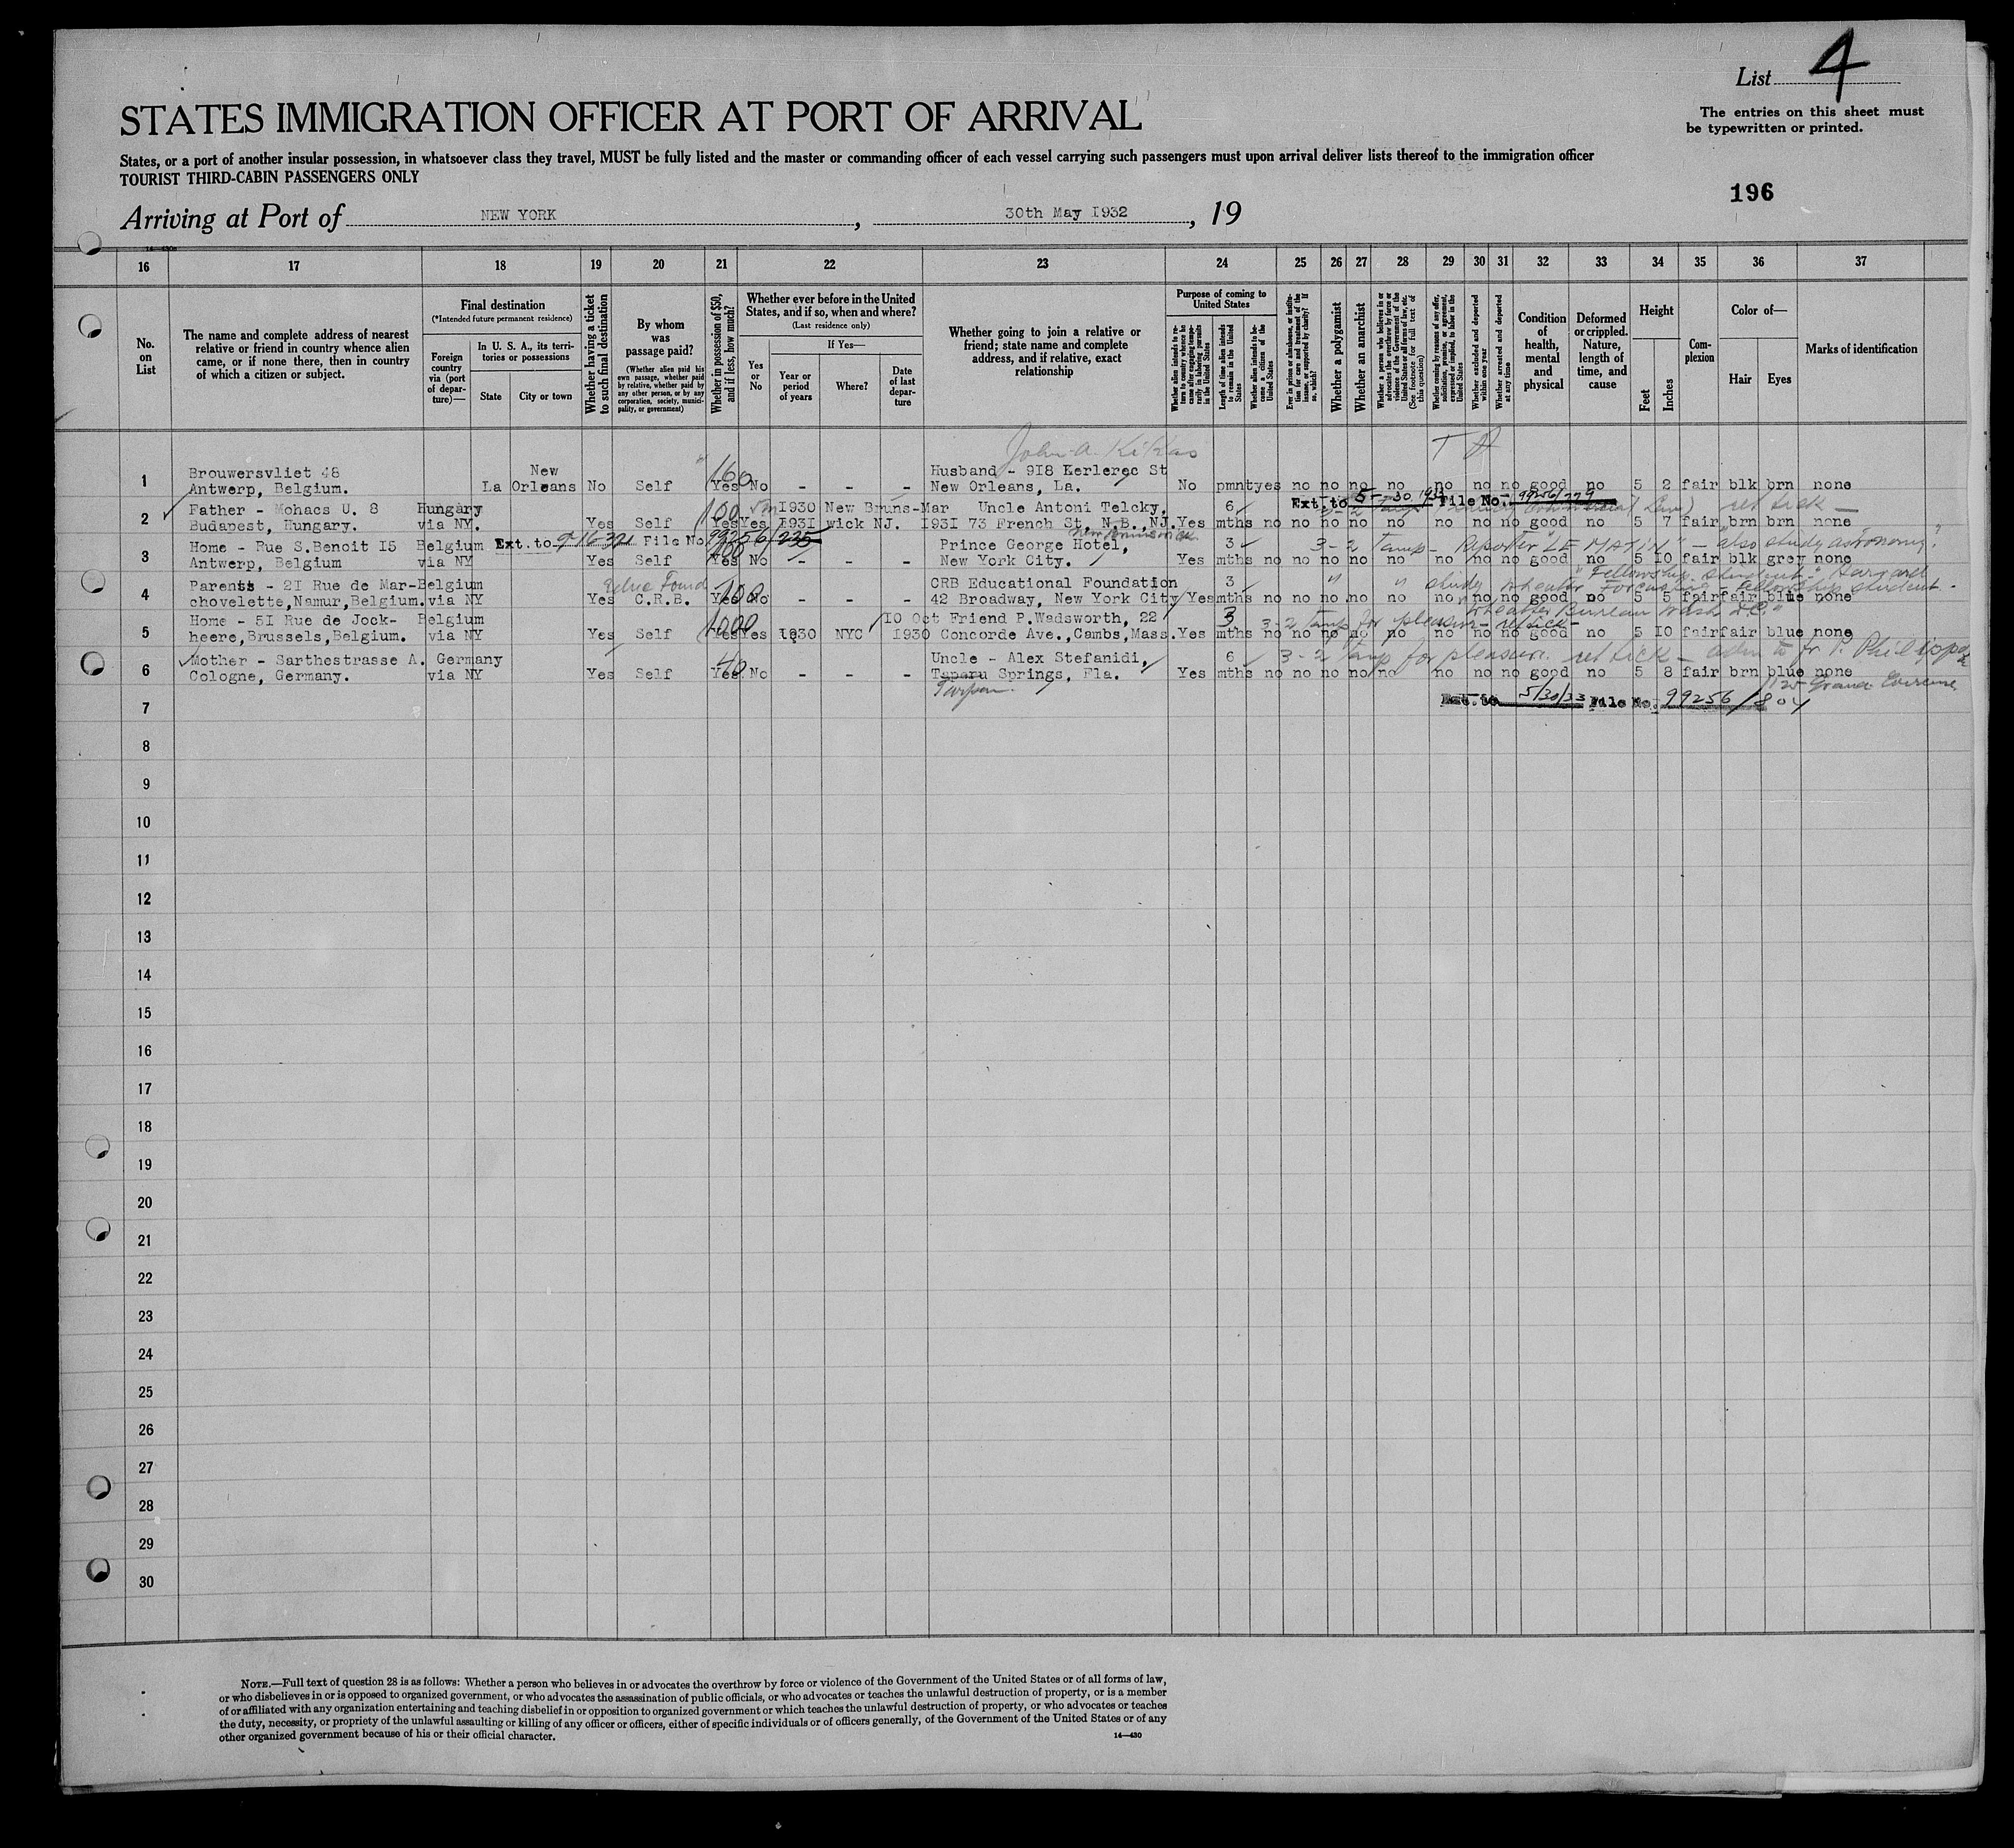 List 4
STATES IMMIGRATION OFFICER AT PORT OF ARRIVAL
The entries on this sheet must
be typewritten or printed.
States, or a port of another insular possession, in whatsoever class they travel, MUST be fully listed and the master or commanding officer of each vessel carrying such passengers must upon arrival deliver lists thereof to the immigration officer
TOURIST THIRD-CABIN PASSENGERS ONLY
196
Arriving at Port of NEW YORK, 30th May I932, 19
16 17 18 19 20 21 22 23 24 25 26 27 28 29 30 31 32 33 34 35 36 37
No.
on
List
The name and complete address of nearest
relative or friend in country whence alien
came, or if none there, then in country
of which a citizen or subject.
Final destination
(*Intended future permanent residence)
Foreign
country
via (port
of depar-
ture)—
In U. S. A., its terri-
tories or possessions
State
City or town
Whether having a ticket
to such final destination
By whom
was
passage paid?
(Whether alien paid his
own passage, whether paid
by relative, whether paid by
any other person, or by any
corporation, society, munici-
pality, or government)
Whether in possession of $50,
and if less, how much?
Whether ever before in the United
States, and if so, when and where?
(Last residence only)
Yes
or
No
If Yes—
Year or
period
of years
Where?
Date
of last
depar-
ture
Whether going to join a relative or
friend; state name and complete
address, and if relative, exact
relationship
Purpose of coming to
United States
Whether alien intends to re-
turn to country whence he
came after engaging tempo-
rarily in laboring pursuits
in the United States
Length of time alien intends
to remain in the United
States
Whether alien intends to be-
come a citizen of the
United States
Ever in prison or almshouse, or institu-
tion for care and treatment of the
insane, or supported by charity? If
so, which?
Whether a polygamist
Whether an anarchist
Whether a person who believes in or
advocates the overthrow by force or
violence of the Government of the
United States or all forms of law, etc.
(See footnote for full text of
this question)
Whether coming by reasons of any offer,
solicitation, promise, or agreement,
expressed or implied, to labor in the
United States
Whether excluded and deported
within one year
Whether arrested and deported
at any time
Condition
of
health,
mental
and
physical
Deformed
or crippled.
Nature,
length of
time, and
cause
Height
Feet
Inches
Com-
plexion
Color of—
Hair
Eyes
Marks of identification
John A. Kikas
1 Brouwersvliet 48 New 160 Husband - 9I8 Kerlerec St
Antwerp, Belgium. La Orleans No Self Yes No - - - New Orleans, La. No pmnt yes no no no no no no no good no 5 2 fair blk brn none
Ext. to 5-30 1933 File No. 99256/229
2 Father - Mohacs U. 8 Hungary 100 I930 New Bruns- Mar Uncle Antoni Telcky, 6 ret tick —
Budapest, Hungary. via NY. Yes Self Yes Yes I93I wick NJ. I93I 73 French St, N.B.,NJ. Yes mths no no no no no no no no good no 5 7 fair brn brn none
Ext. to File No 99256/235
3 Home - Rue S.Benoit I5 Belgium 400 Prince George Hotel, 3 3-2 Temp- Reporter "LE MATIN" - also study astronomy
Antwerp, Belgium via NY Yes Self Yes No - - - New York City. Yes mths no no no no no no no no good no 5 IO fair blk grey none
4 Parents - 2I Rue de Mar- Belgium Educ Found 100 CRB Educational Foundation 3 " " study
chovelette,Namur,Belgium. via NY Yes C.R.B. Yes No - - - 42 Broadway, New York City Yes mths no no no no no no no no good no 5 5 fair fair blue none
Bureau Wash. D.C."
5 Home - 5I Rue de Jock- Belgium 1000 IO Oct Friend P.Wadsworth, 22 3 3-2 temp for pleasure - ret tick -
heere,Brussels,Belgium. via NY Yes Self Yes Yes I930 NYC I930 Concorde Ave.,Cambs,Mass. Yes mths no no no no no no no no good no 5 IO fair fair blue none
6 Mother - Sarthestrasse A. Germany 40 Uncle - Alex Stefanidi, 6 3-2 temp for pleasure. ret tick —
Cologne, Germany. via NY Yes Self Yes No - - - Taparu Springs, Fla. Yes mths no no no no no no no no good no 5 8 fair brn blue none
Tarpon.
7 Ext. to 5/30/33 File No. 99256/804
8
9
10
11
12
13
14
15
16
17
18
19
20
21
22
23
24
25
26
27
28
29
30
NOTE.—Full text of question 28 is as follows: Whether a person who believes in or advocates the overthrow by force or violence of the Government of the United States or of all forms of law,
or who disbelieves in or is opposed to organized government, or who advocates the assassination of public officials, or who advocates or teaches the unlawful destruction of property, or is a member
of or affiliated with any organization entertaining and teaching disbelief in or opposition to organized government or which teaches the unlawful destruction of property, or who advocates or teaches
the duty, necessity, or propriety of the unlawful assaulting or killing of any officer or officers, either of specific individuals or of officers generally, of the Government of the United States or of any
other organized government because of his or their official character.
14—430